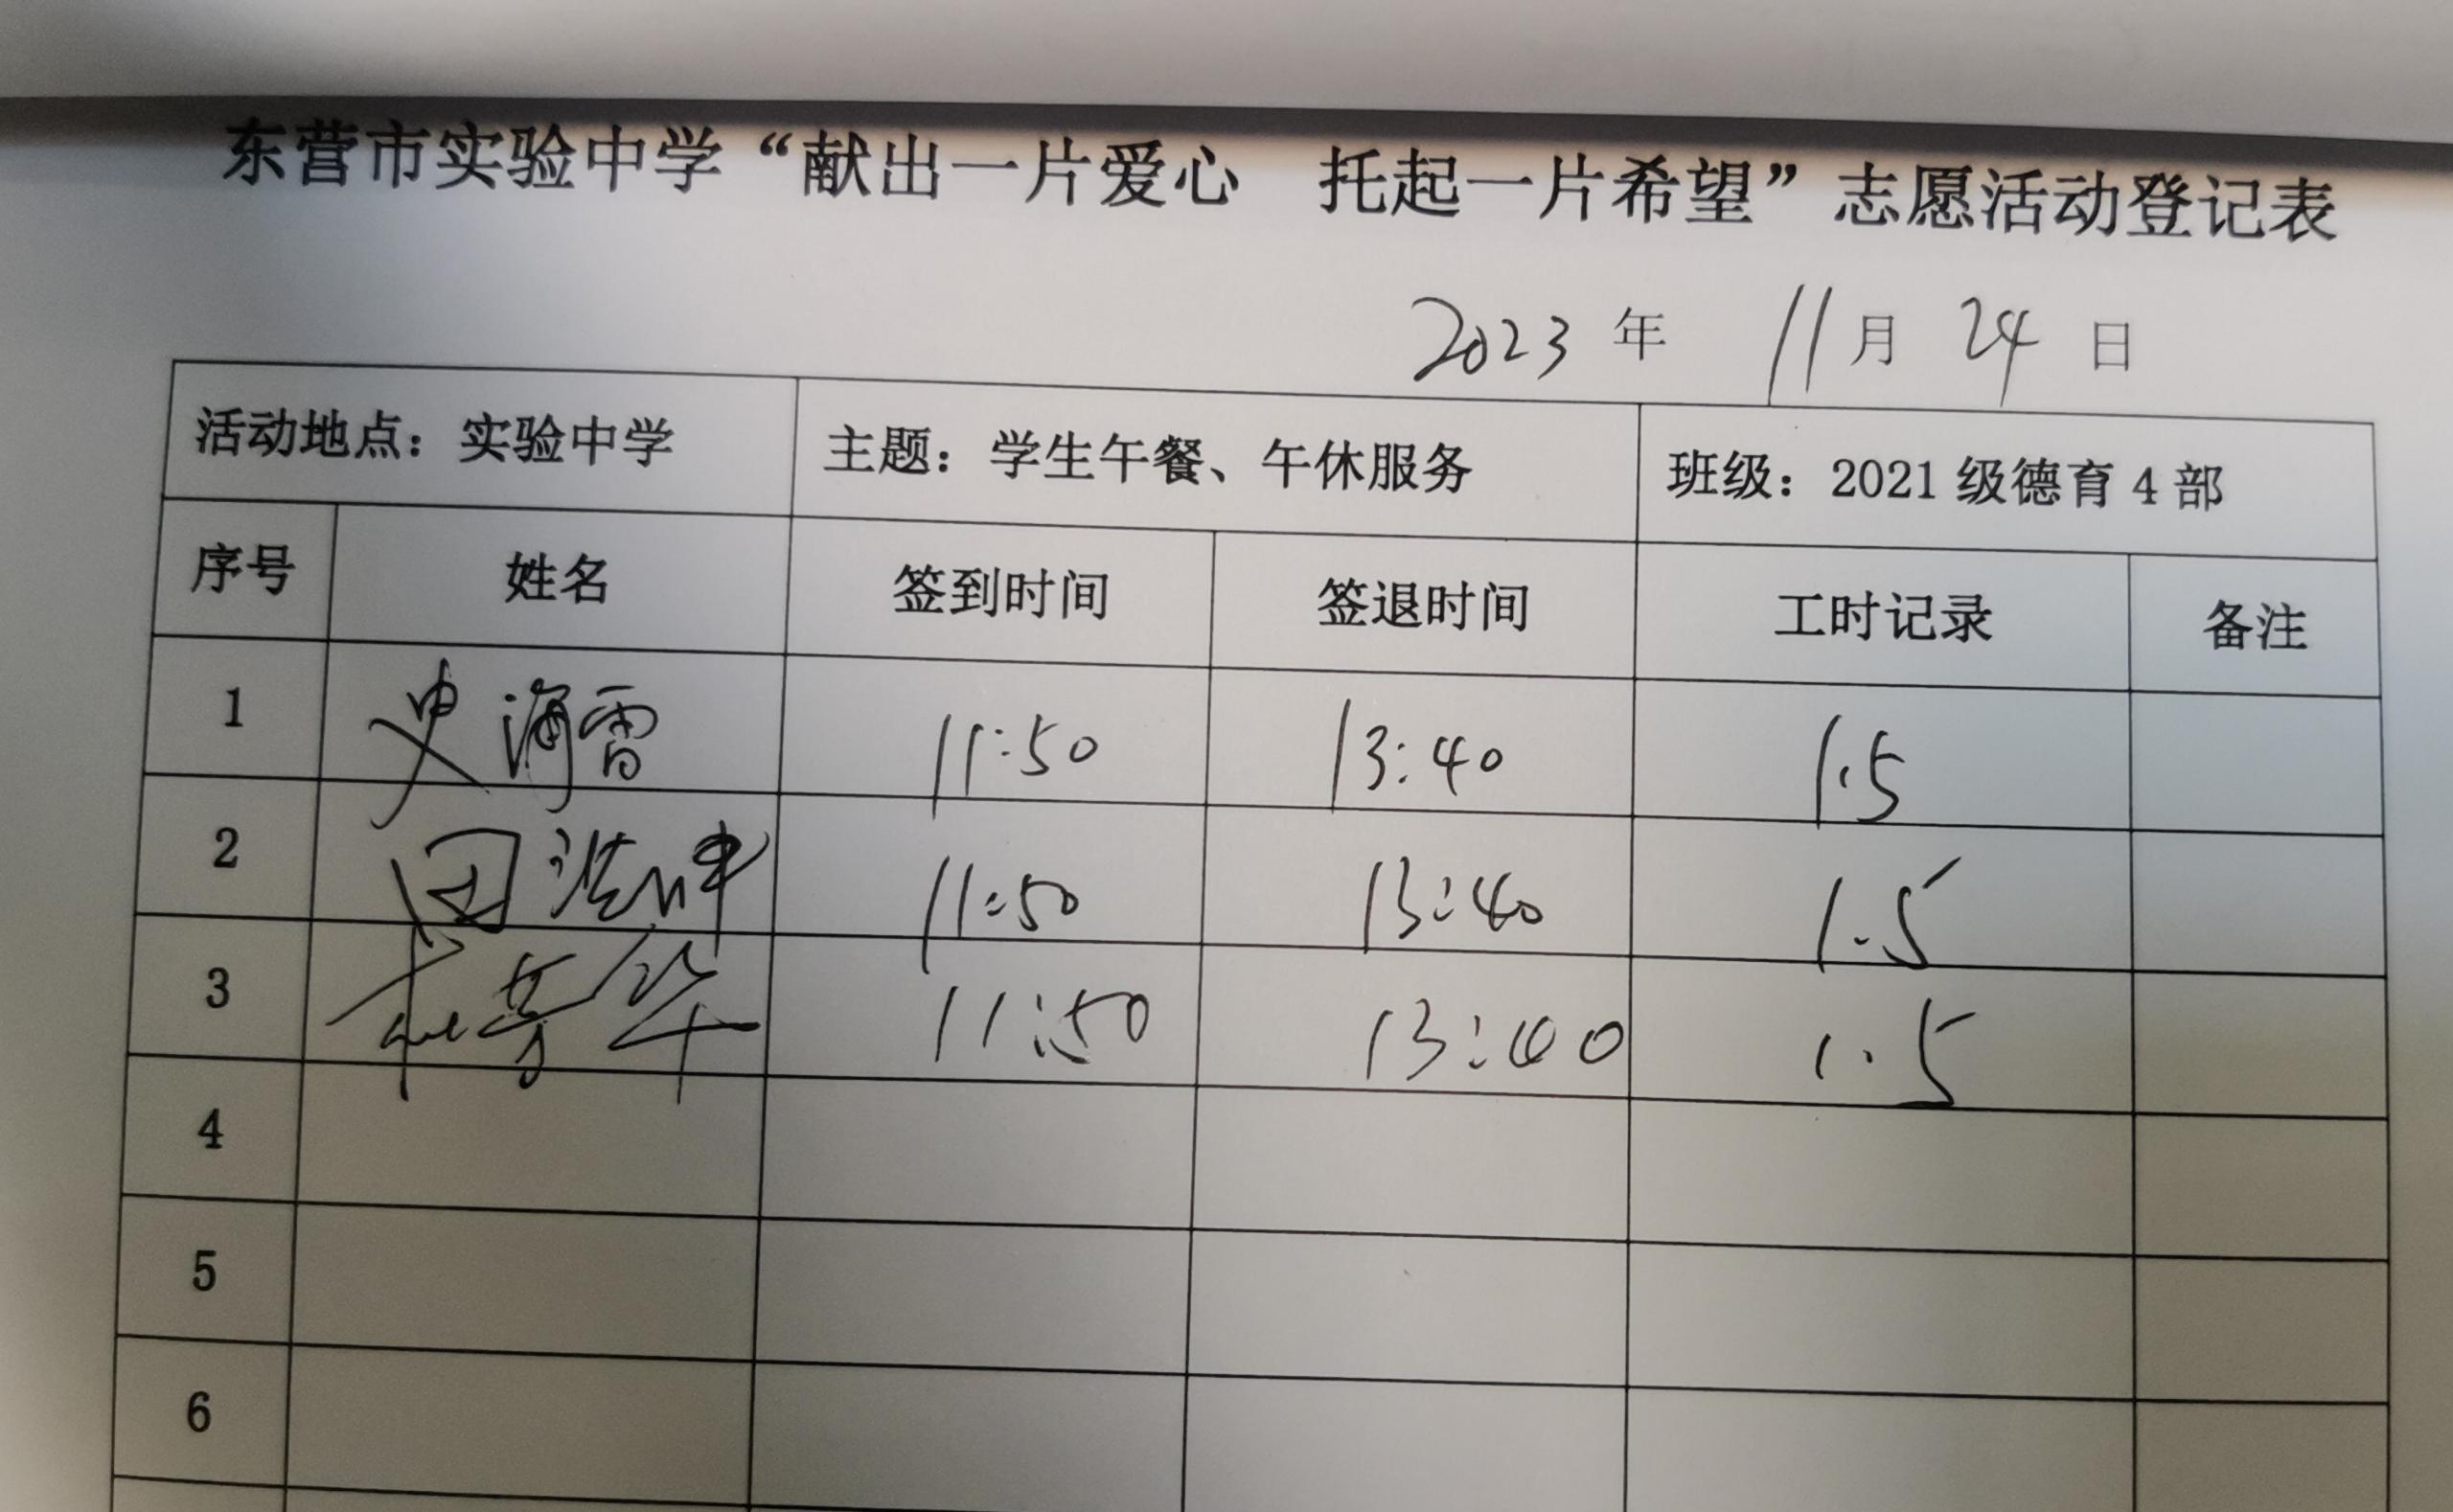 东营市实验中学“献出一片爱心 托起一片希望”志愿活动登记表
2023 年 11 月 24 日
活动地点：实验中学 主题：学生午餐、午休服务 班级：2021 级德育 4 部
序号 姓名 签到时间 签退时间 工时记录 备注
1 史海雷 11:50 13:40 1.5
2 田 11:50 13:40 1.5
3 11:50 13:40 1.5
4
5
6